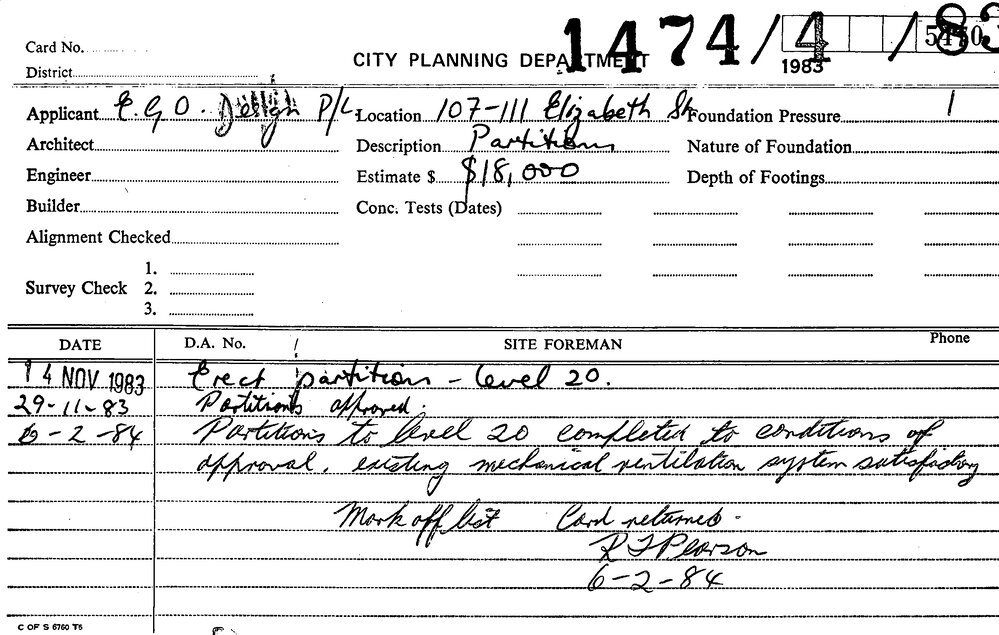 Card No.
1474/4/83
5450
1983
CITY PLANNING DEPARTMENT
District
Applicant E.G.O. Design P/L. Location 107-111 Elizabeth St. Foundation Pressure 1
Architect Description Partitions Nature of Foundation
Engineer Estimate $ $18,000 Depth of Footings
Builder Conc. Tests (Dates)
Alignment Checked
1.
Survey Check 2.
3.
DATE D.A. No. SITE FOREMAN Phone
14 NOV 1983 Erect partitions - level 20.
29-11-83 Partitions approved.
6-2-84 Partitions to level 20 completed to conditions of
approval. existing mechanical ventilation system satisfactory
Mark off list Card returned.
R J Pearson
6-2-84
C OF S 6760 T6